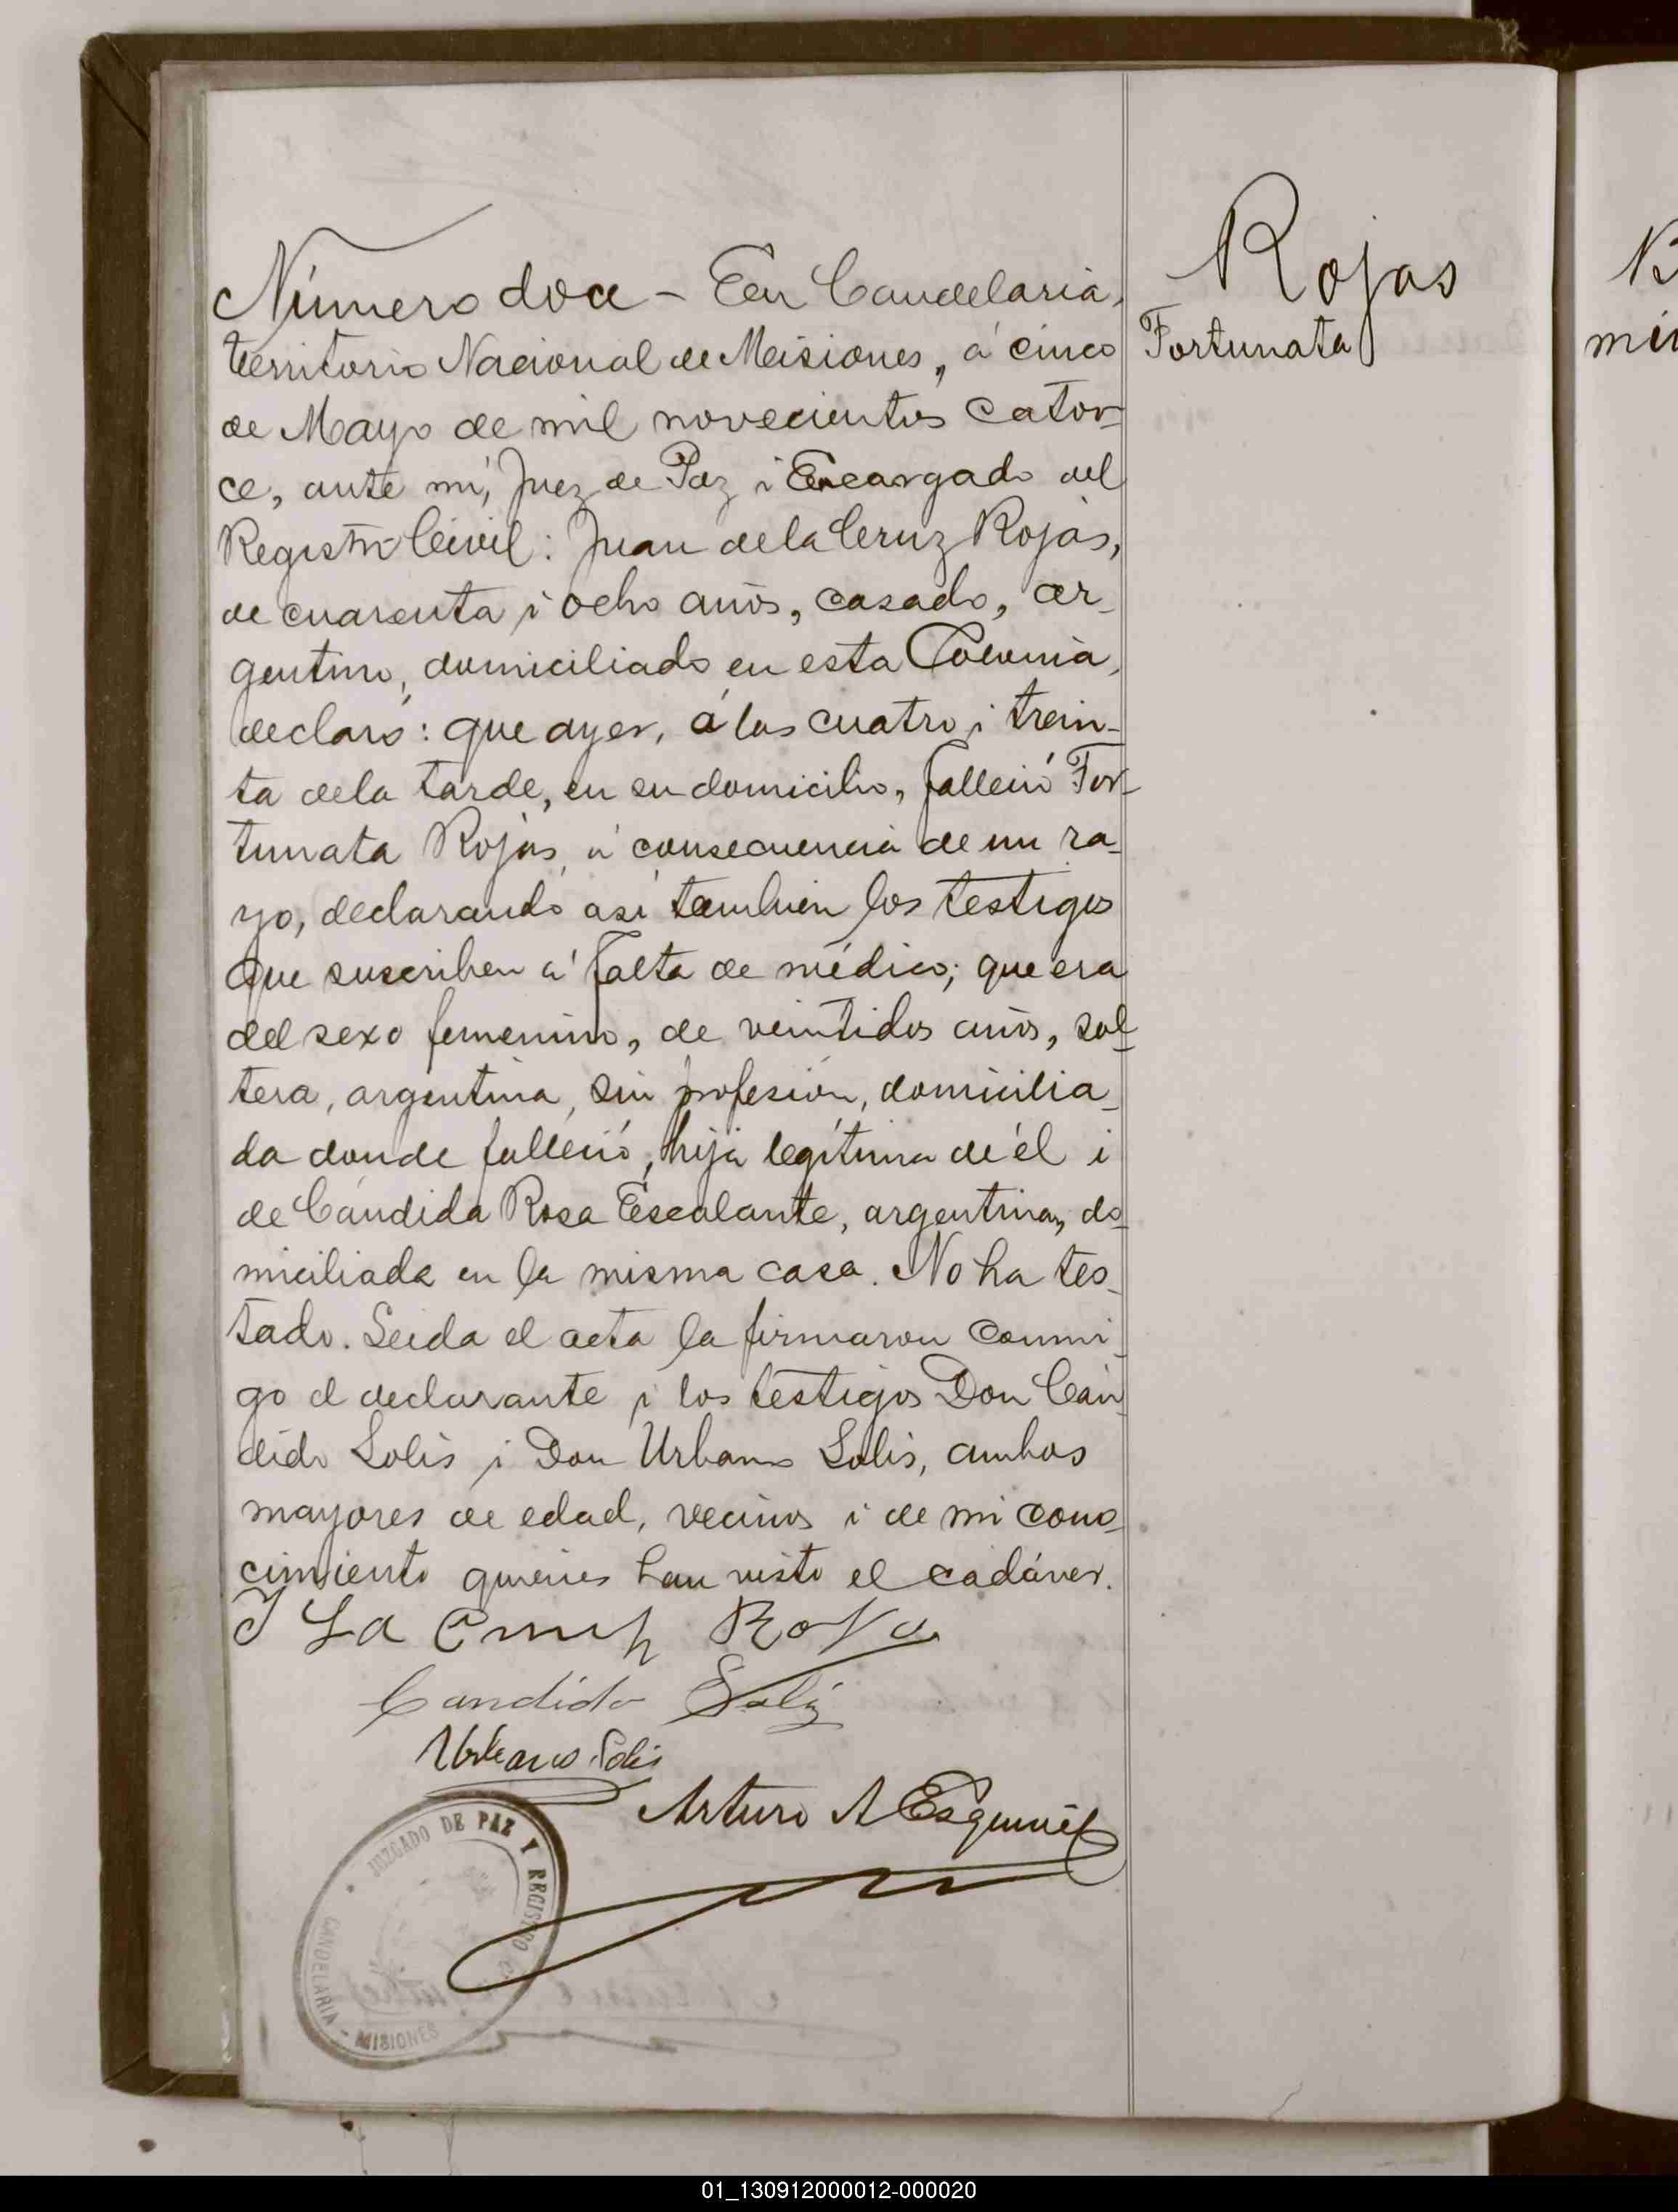 Número doce – En Candelaria,
territorio Nacional de Misiones, á cinco
de Mayo de mil novecientos cator-
ce, ante mí, Juez de Paz i Encargado del
Registro Civil: Juan de la Cruz Rojas,
de cuarenta i ocho años, casado, ar-
gentino, domiciliado en esta Colonia,
declaró: que ayer, á las cuatro i trein-
ta de la tarde, en su domicilio, falleció For-
tunata Rojas, á consecuencia de un ra-
yo, declarando así tambien los testigos
que suscriben á falta de médico; que era
del sexo femenino, de veintidos años, sol-
tera, argentina, sin profesión, domicilia-
da donde falleció, hija legítima de él i
de Cándida Rosa Escalante, argentina, do-
miciliada en la misma casa. No ha tes-
tado. Leida el acta la firmaron conmi-
go el declarante i los testigos Don Cán-
dido Solis i Don Urbano Solis, ambos
mayores de edad, vecinos i de mi cono-
cimiento quienes han visto el cadáver.
J La Cruz Roja
Candido Solis
Urbano Solis
Arturo A Esquivel
JUZGADO DE PAZ Y REGISTRO C
CANDELARIA - MISIONES
Rojas
Fortunata
01_130912000012-000020